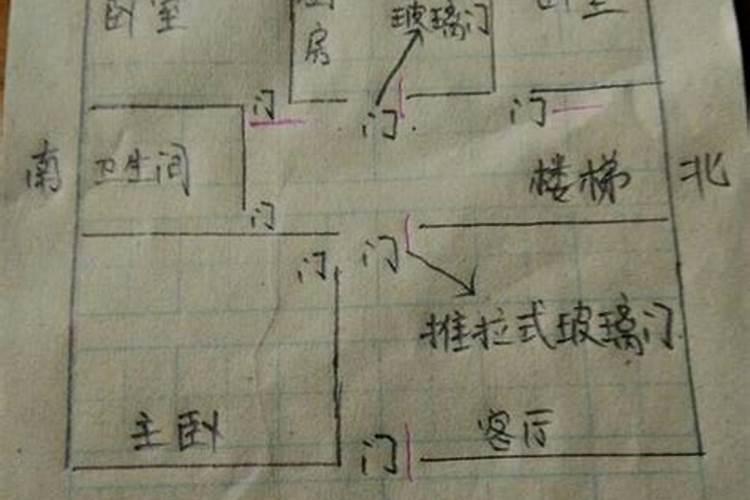 卧室
房
玻璃门
卧室
门
门
门
南
卫生间
楼梯
北
门
门
门
推拉式玻璃门
主卧
客厅
门